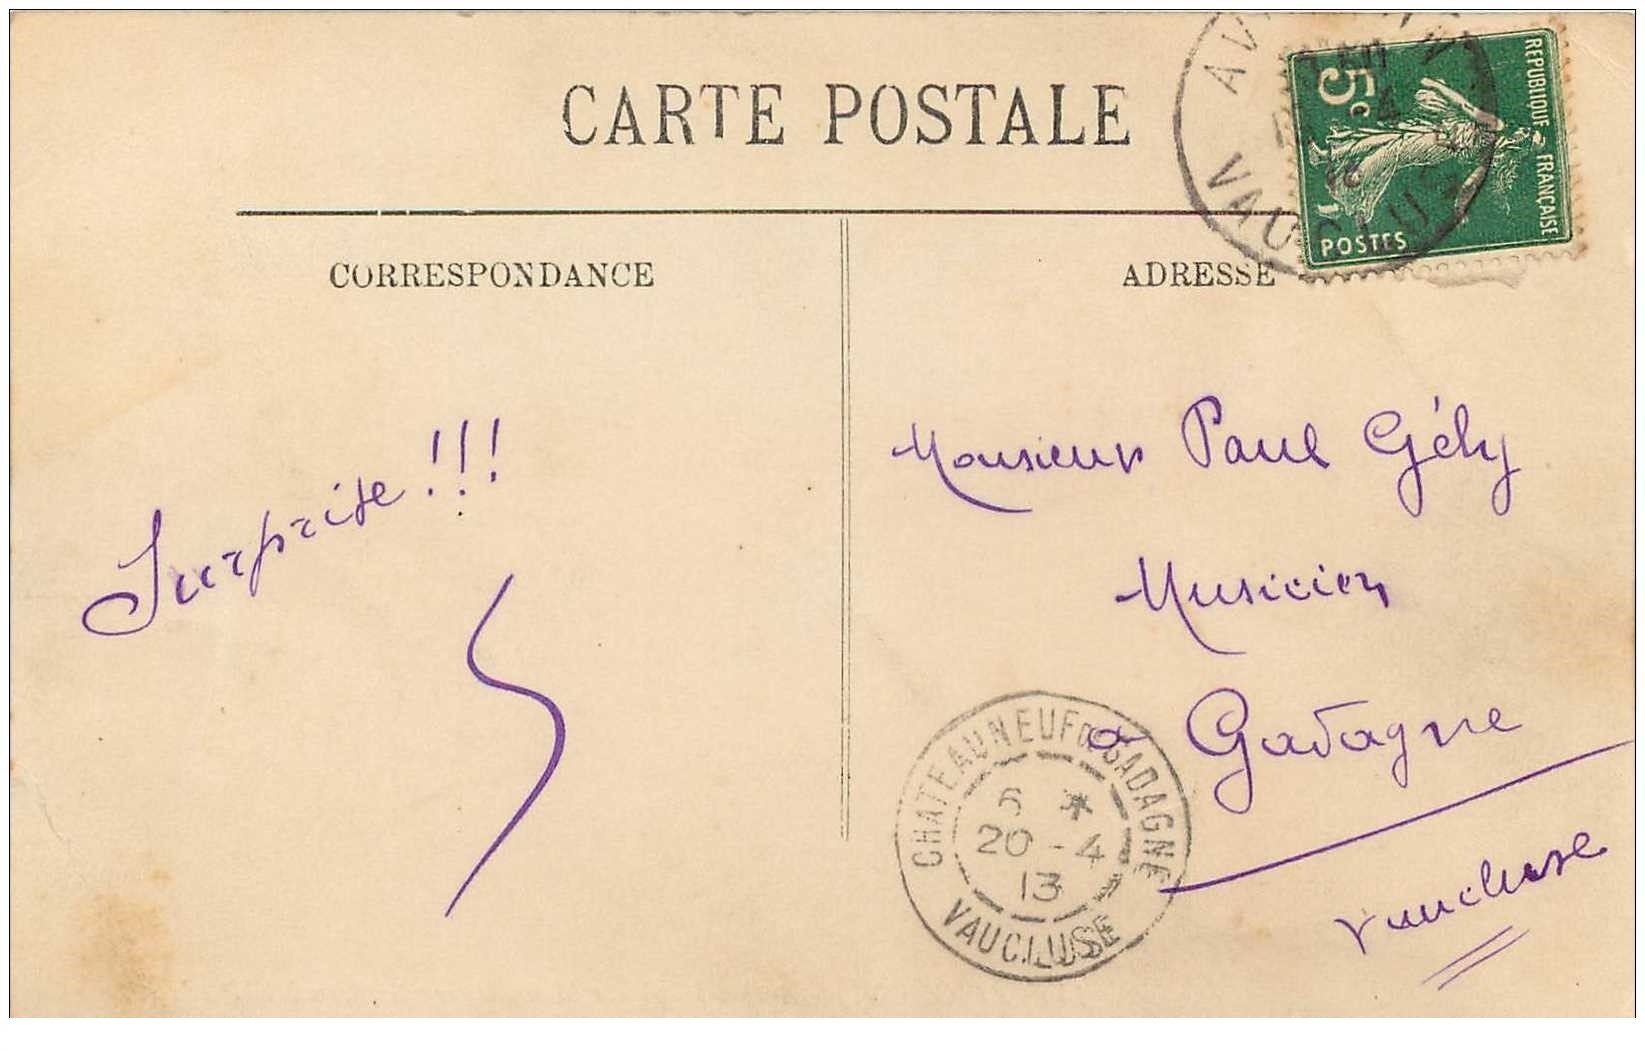 CARTE POSTALE
CORRESPONDANCE
ADRESSE
RÉPUBLIQUE FRANÇAISE
5c
POSTES
VAUCLUSE
Surprise!!!
Monsieur Paul Gély
Musicien
à Gadagne
Vaucluse
CHATEAUNEUF DE GADAGNE
20-4
13
VAUCLUSE